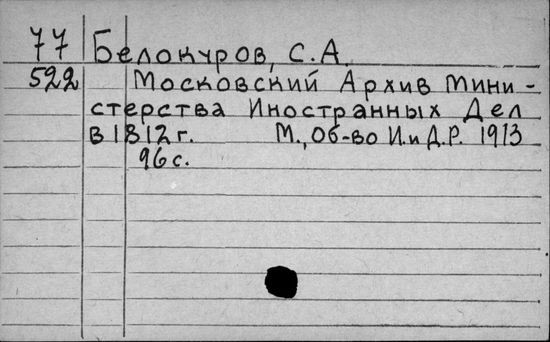 77 Белокуров, С.А.
522 Московский Архив Мини-
стерства Иностранных Дел
в 1812 г. М., Об-во И. и Д.Р. 1913
96 с.